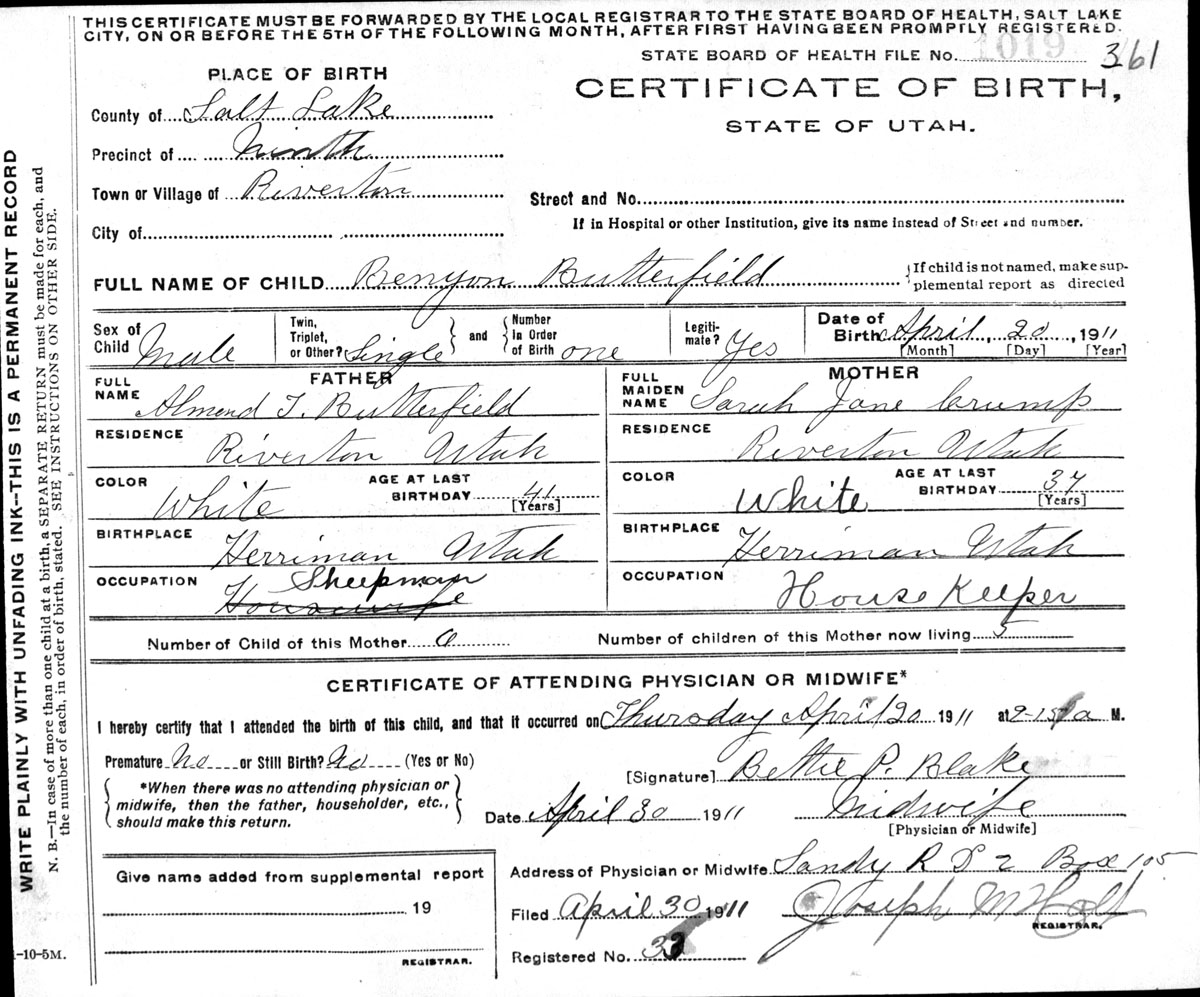 THIS CERTIFICATE MUST BE FORWARDED BY THE LOCAL REGISTRAR TO THE STATE BOARD OF HEALTH, SALT LAKE
CITY, ON OR BEFORE THE 5TH OF THE FOLLOWING MONTH, AFTER FIRST HAVING BEEN PROMPTLY REGISTERED.
STATE BOARD OF HEALTH FILE NO. 1019 361
PLACE OF BIRTH
CERTIFICATE OF BIRTH,
STATE OF UTAH.
County of Salt Lake
Precinct of Ninth
Town or Village of Riverton
Street and No.
If in Hospital or other Institution, give its name instead of Street and number.
City of
FULL NAME OF CHILD Benyon Butterfield
If child is not named, make sup-
plemental report as directed
Sex of Child Male
Twin, Triplet, or Other? Single
and
Number In Order of Birth one
Legiti-mate? Yes
Date of Birth April 20, 1911
[Month] [Day] [Year]
FATHER
FULL NAME Almond T. Butterfield
RESIDENCE Riverton Utah
COLOR White AGE AT LAST BIRTHDAY 41 [Years]
BIRTHPLACE Herriman Utah
OCCUPATION Sheepman
Housewife
MOTHER
FULL MAIDEN NAME Sarah Jane Crump
RESIDENCE Riverton Utah
COLOR White AGE AT LAST BIRTHDAY 37 [Years]
BIRTHPLACE Herriman Utah
OCCUPATION House Keeper
Number of Child of this Mother 6 Number of children of this Mother now living 5
CERTIFICATE OF ATTENDING PHYSICIAN OR MIDWIFE*
I hereby certify that I attended the birth of this child, and that it occurred on Thursday April 20 1911 at 9-15 a M.
Premature No or Still Birth? No (Yes or No)
*When there was no attending physician or
midwife, then the father, householder, etc.,
should make this return.
[Signature] Bettie P. Blake
Date April 30 1911 Midwife
[Physician or Midwife]
Give name added from supplemental report
19
REGISTRAR.
Address of Physician or Midwife Sandy R D 2 Box 105
Filed April 30 1911 Joseph M Holt
REGISTRAR.
Registered No. 33
-10-5M.
WRITE PLAINLY WITH UNFADING INK--THIS IS A PERMANENT RECORD
N. B.—In case of more than one child at a birth, a SEPARATE RETURN must be made for each, and
the number of each, in order of birth, stated. SEE INSTRUCTIONS ON OTHER SIDE.